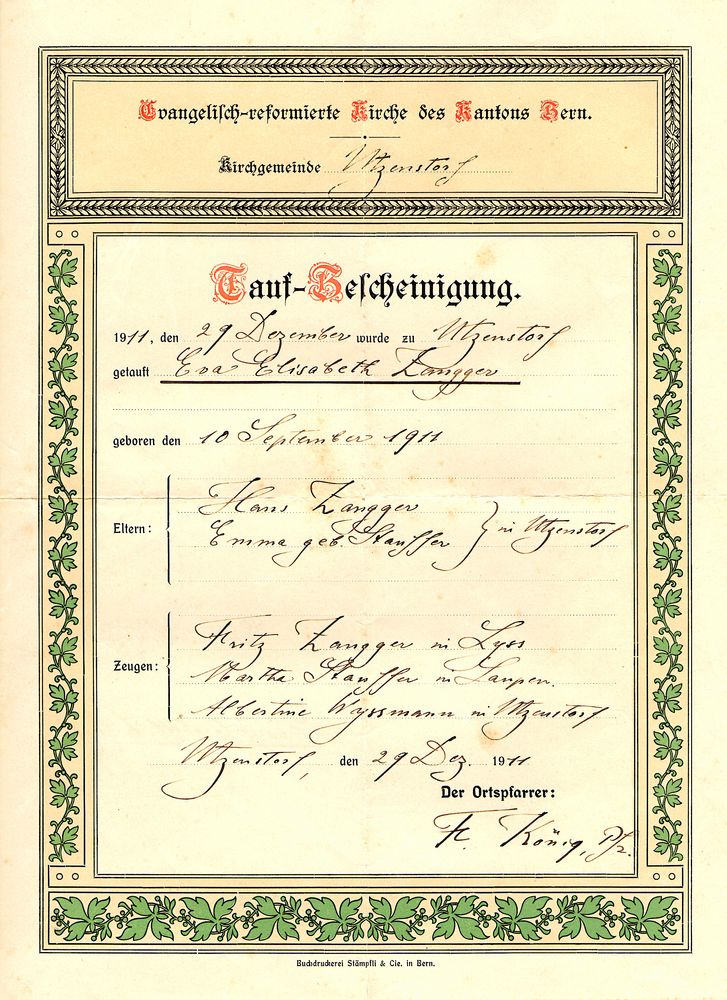 Evangelisch-reformierte Kirche des Kantons Bern.
Kirchgemeinde Utzenstorf
Tauf-Bescheinigung.
1911, den 29 Dezember wurde zu Utzenstorf
getauft Eva Elisabeth Zangger
geboren den 10 September 1911
Eltern: Hans Zangger
Emma geb. Stauffer } in Utzenstorf
Zeugen: Fritz Zangger in Lyss
Martha Stauffer in Laupen.
Albertine Wyssmann in Utzenstorf
Utzenstorf, den 29 Dez. 1911
Der Ortspfarrer:
Fr. König, Pfr.
Buchdruckerei Stämpfli & Cie. in Bern.